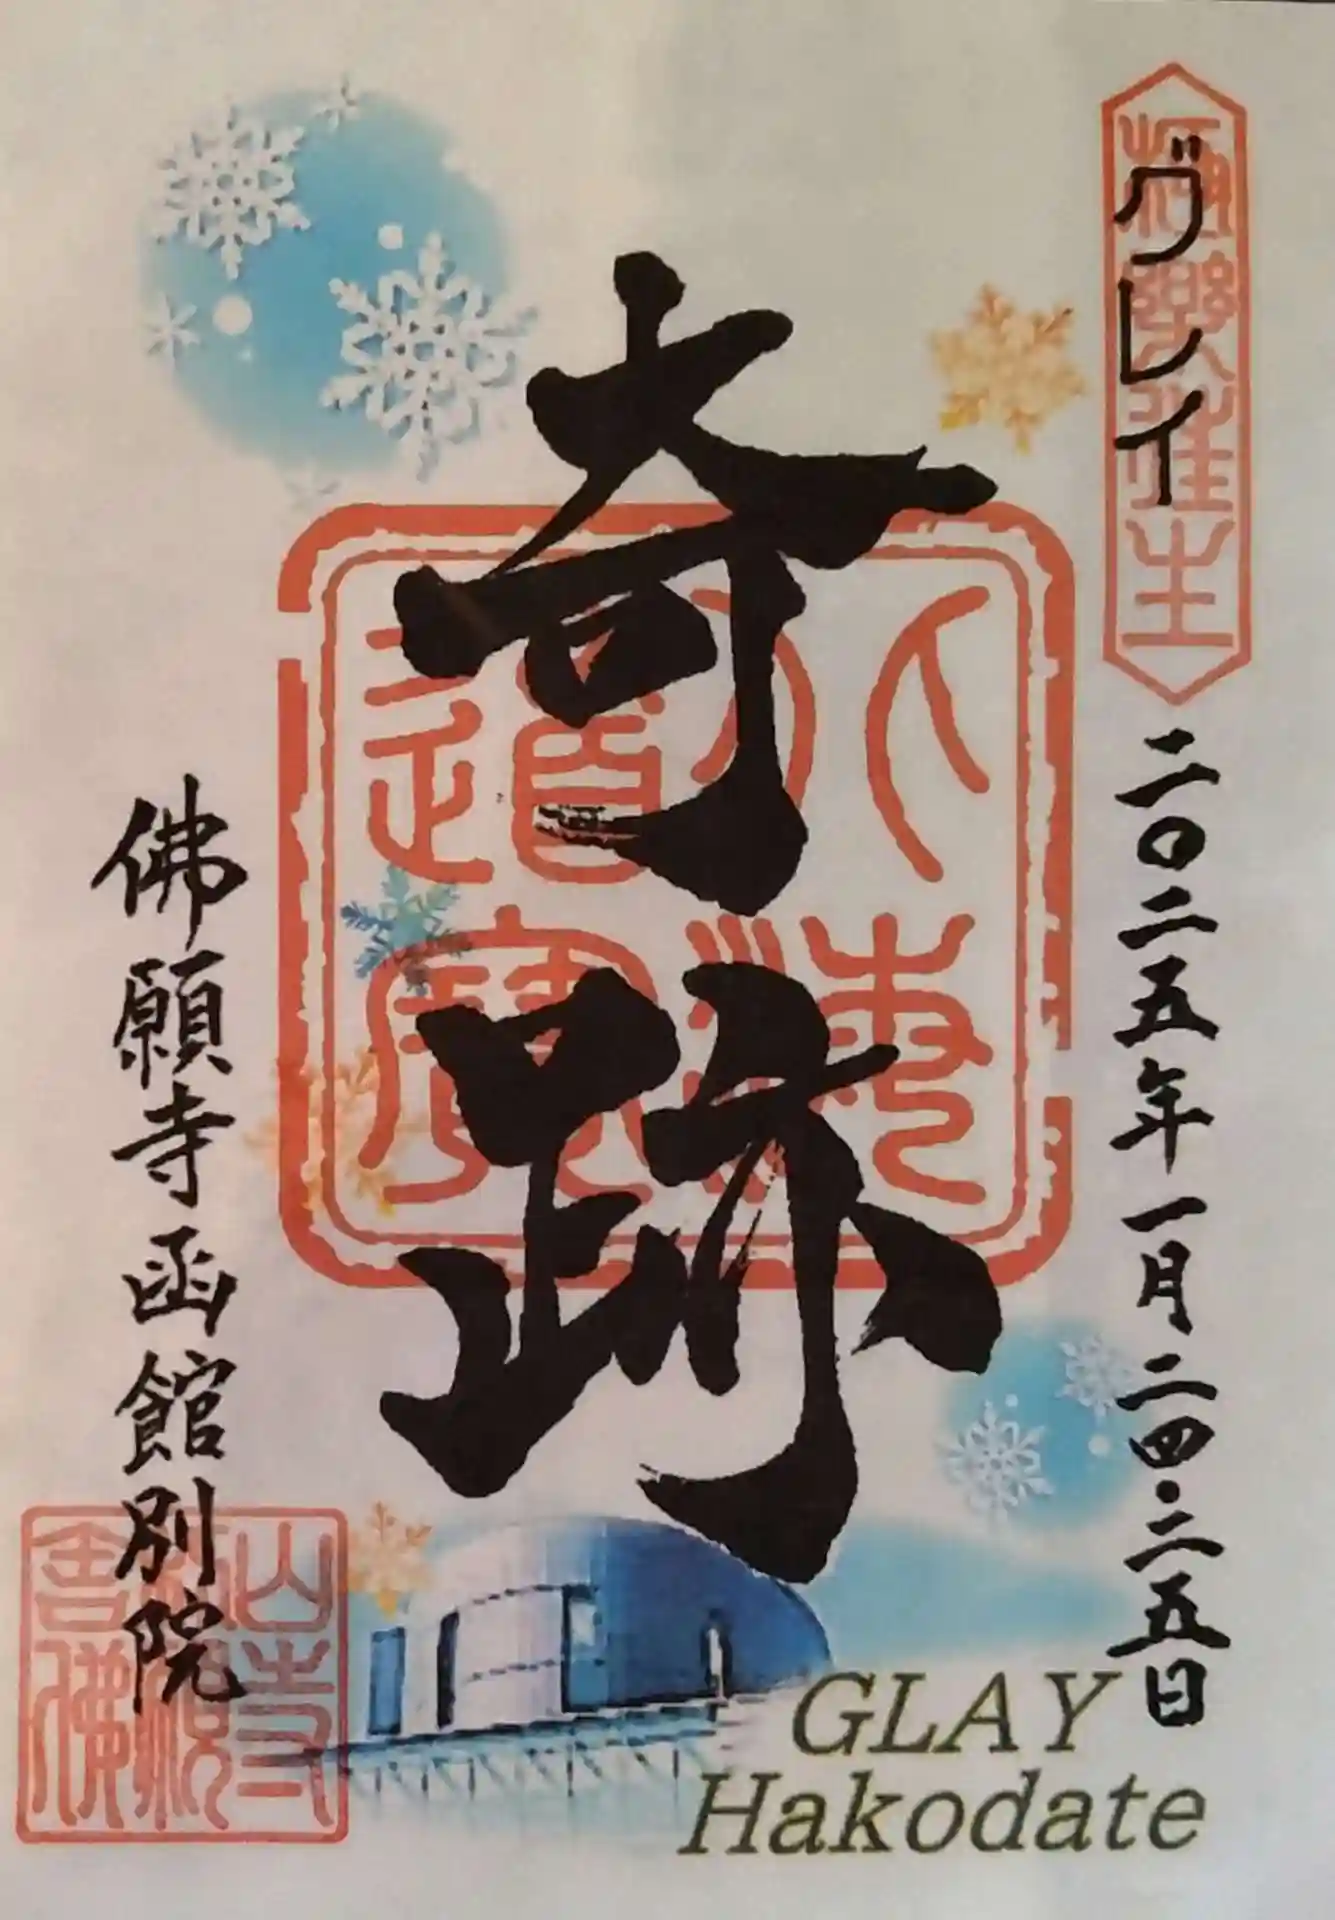 グレイ
極楽往生
二〇二五年一月二四・二五日
奇跡
佛願寺函館別院
GLAY
Hakodate